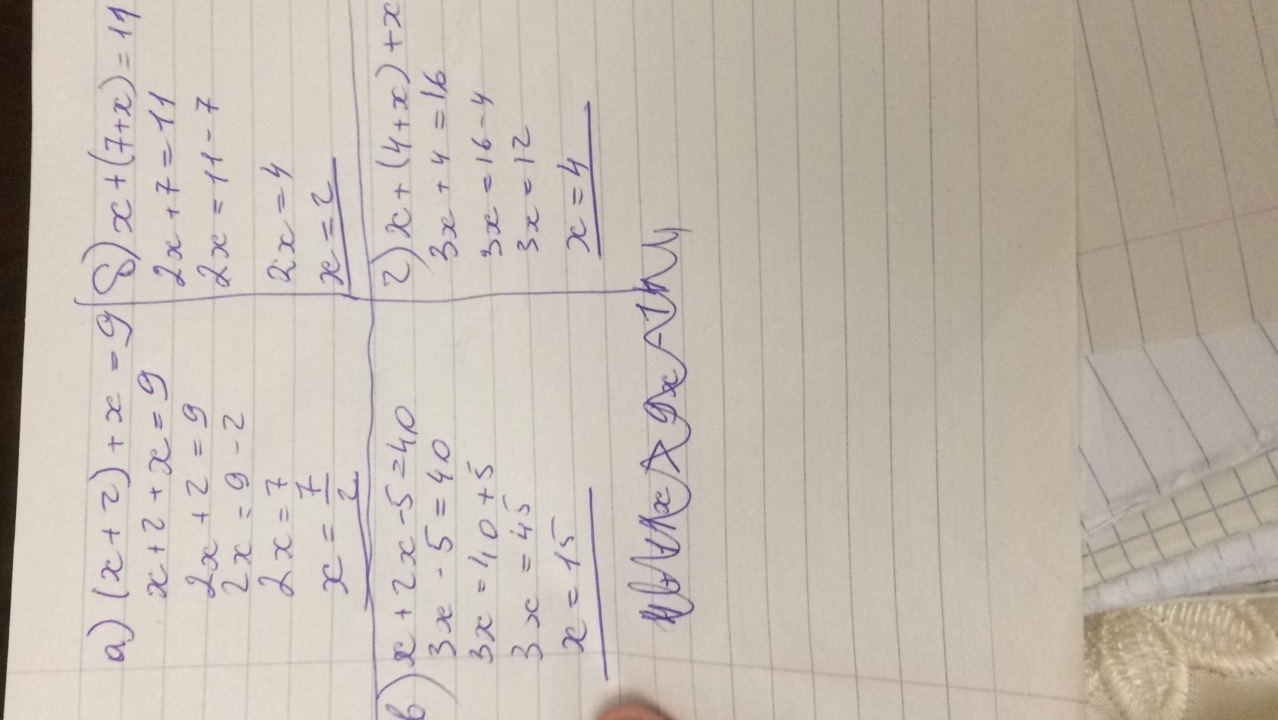 а) (x+2)+x=9
x+2+x=9
2x+2=9
2x=9-2
2x=7
x=7/2
б) x+(7+x)=11
2x+7=11
2x=11-7
2x=4
x=2
в) x+2x-5=40
3x-5=40
3x=40+5
3x=45
x=15
г) x+(4+x)+x
3x+4=16
3x=16-4
3x=12
x=4